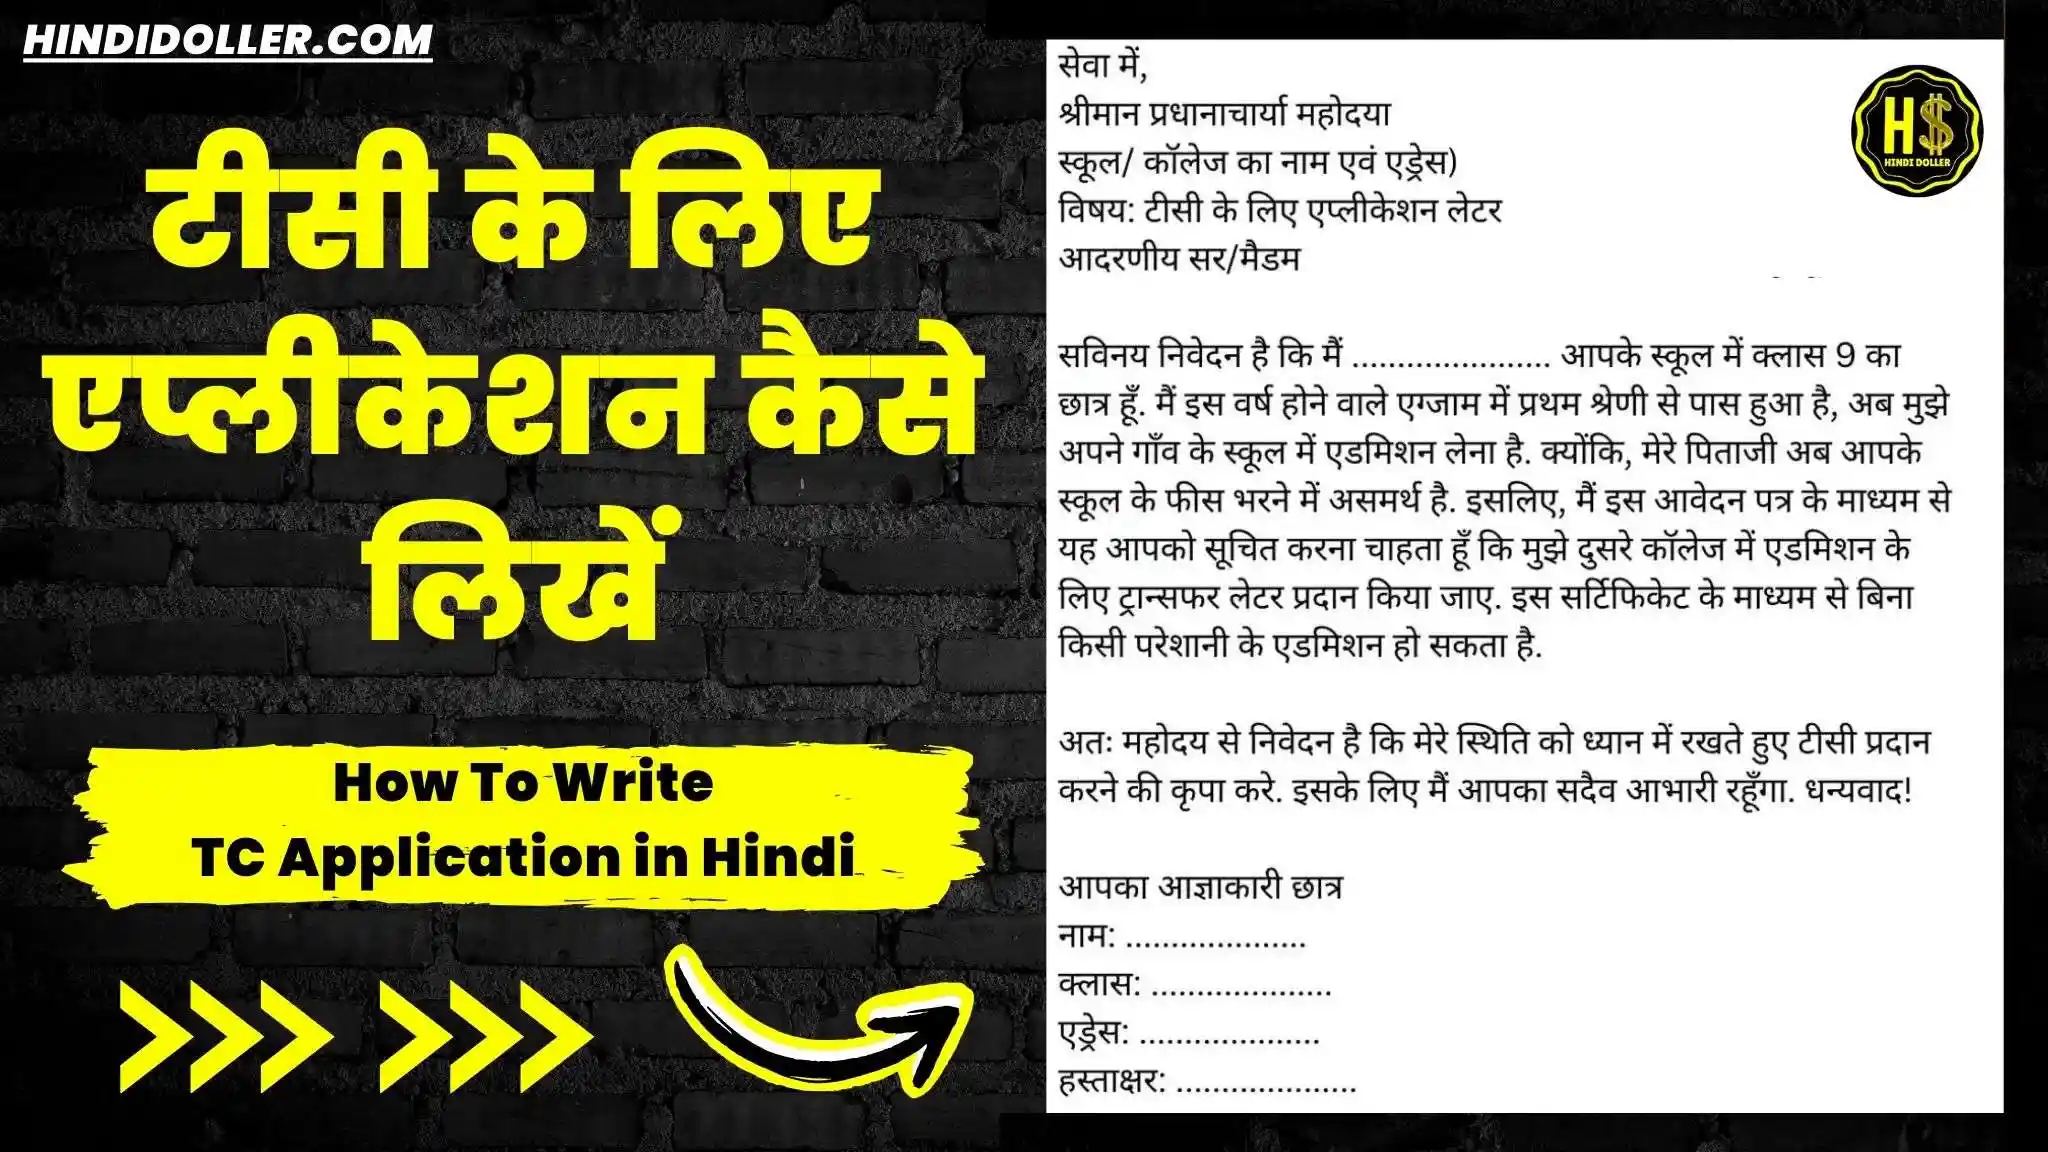 HINDIDOLLER.COM
टीसी के लिए
एप्लीकेशन कैसे
लिखें
How To Write
TC Application in Hindi
सेवा में,
श्रीमान प्रधानाचार्या महोदया
स्कूल/ कॉलेज का नाम एवं एड्रेस)
विषय: टीसी के लिए एप्लीकेशन लेटर
आदरणीय सर/मैडम
सविनय निवेदन है कि मैं ...................... आपके स्कूल में क्लास 9 का
छात्र हूँ. मैं इस वर्ष होने वाले एग्जाम में प्रथम श्रेणी से पास हुआ है, अब मुझे
अपने गाँव के स्कूल में एडमिशन लेना है. क्योंकि, मेरे पिताजी अब आपके
स्कूल के फीस भरने में असमर्थ है. इसलिए, मैं इस आवेदन पत्र के माध्यम से
यह आपको सूचित करना चाहता हूँ कि मुझे दुसरे कॉलेज में एडमिशन के
लिए ट्रान्सफर लेटर प्रदान किया जाए. इस सर्टिफिकेट के माध्यम से बिना
किसी परेशानी के एडमिशन हो सकता है.
अतः महोदय से निवेदन है कि मेरे स्थिति को ध्यान में रखते हुए टीसी प्रदान
करने की कृपा करे. इसके लिए मैं आपका सदैव आभारी रहूँगा. धन्यवाद!
आपका आज्ञाकारी छात्र
नाम: ....................
क्लास: ....................
एड्रेस: ....................
हस्ताक्षर: ....................
H$
HINDI DOLLER